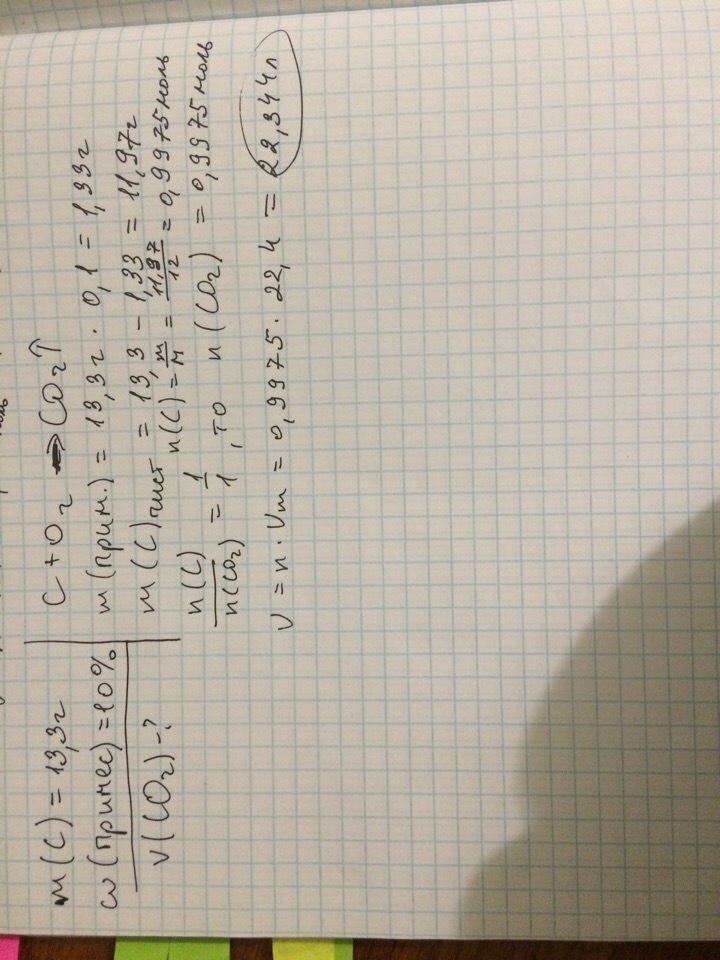 m(C) = 13,3г
ω(примес) = 10%
V(CO₂) - ?
C + O₂ → CO₂↑
m(прим.) = 13,3г · 0,1 = 1,33г
m(C)чист = 13,3 - 1,33 = 11,97г
n(C) = m/M = 11,97/12 = 0,9975моль
n(C)/n(CO₂) = 1/1, то n(CO₂) = 0,9975моль
V = n · Vm = 0,9975 · 22,4 = 22,344л